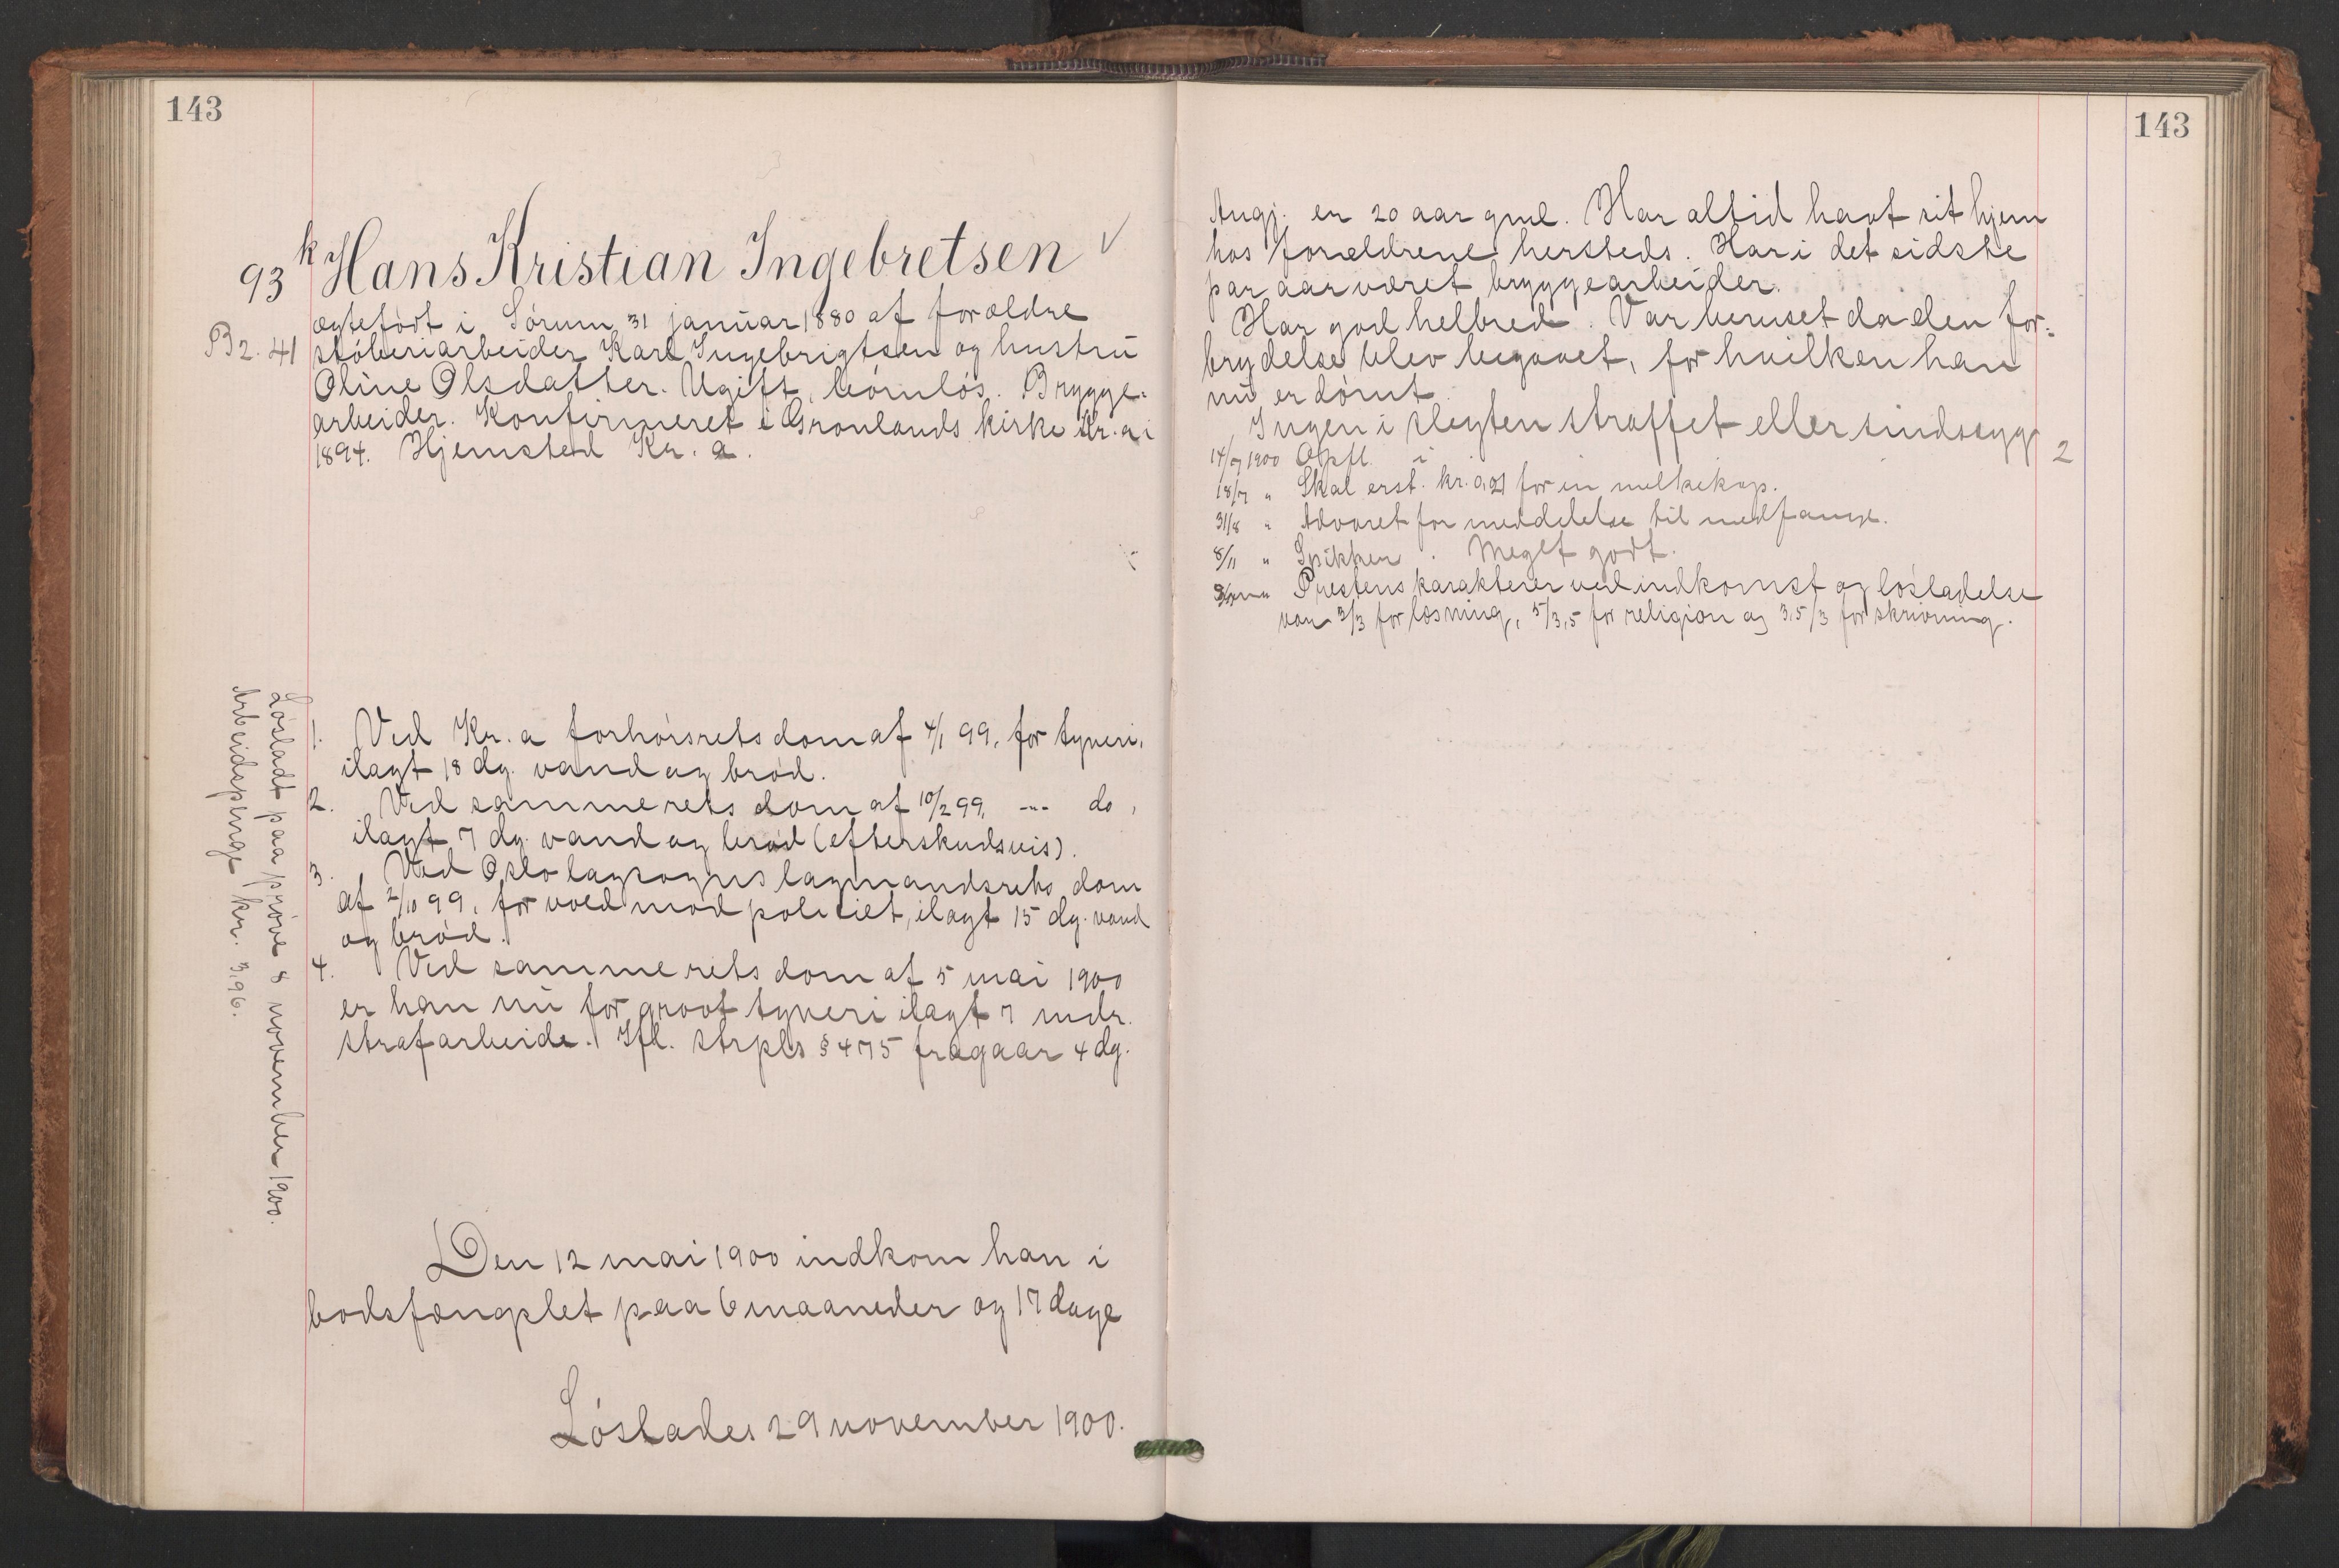 143
93 k Hans Kristian Ingebretsen ✓
ægtefødt i Sørum 31 januar 1880 af forældre
B 2. 41 støberiarbeider Karl Ingebrigtsen og hustru
Oline Olsdatter. Ugift, børnløs. Brygge-
arbeider. Konfirmeret i Grønlands kirke Kr.a i
1894. Hjemsted Kr. a.
1. Ved Kr. a forhørsrets dom af 4/1 99, for tyveri,
ilagt 18 dg. vand og brød.
2. Ved samme rets dom af 10/2 99, -"- do,
ilagt 7 dg. vand og brød (efterskudsvis).
3. Ved Oslo lagsogns lagmandsrets dom
af 2/10 99, for vold mod politiet, ilagt 15 dg. vand
og brød.
4. Ved samme rets dom af 5 mai 1900
er han nu for grovt tyveri ilagt 7 mdr.
strafarbeide. Ifl. strpls § 475 fragaar 4 dg.
Løsladt paa prøve 8 november 1900.
Arbeidspenge kr. 3,96.
Den 12 mai 1900 indkom han i
bodsfængslet paa 6 maaneder og 17 dage
Løslades 29 november 1900.
143
Angj. er 20 aar gml. Har altid havt sit hjem
hos forældrene hersteds. Har i det sidste
par aar været bryggearbeider.
Har god helbred. Var beruset da den for-
brydelse blev begaaet, for hvilken han
nu er dømt.
Ingen i slegten straffet eller sindssyg
14/7 1900 Opfl. 2
18/7 " Skal erst. kr. 0,21 for en melkekop.
31/8 " Advaret for meddelelse til medfange.
8/11 " Spikker. Meget godt.
Prestens karakterer ved indkomst og løsladelse
var 3/3 for læsning, 5/3,5 for religion og 3,5/3 for skrivning.